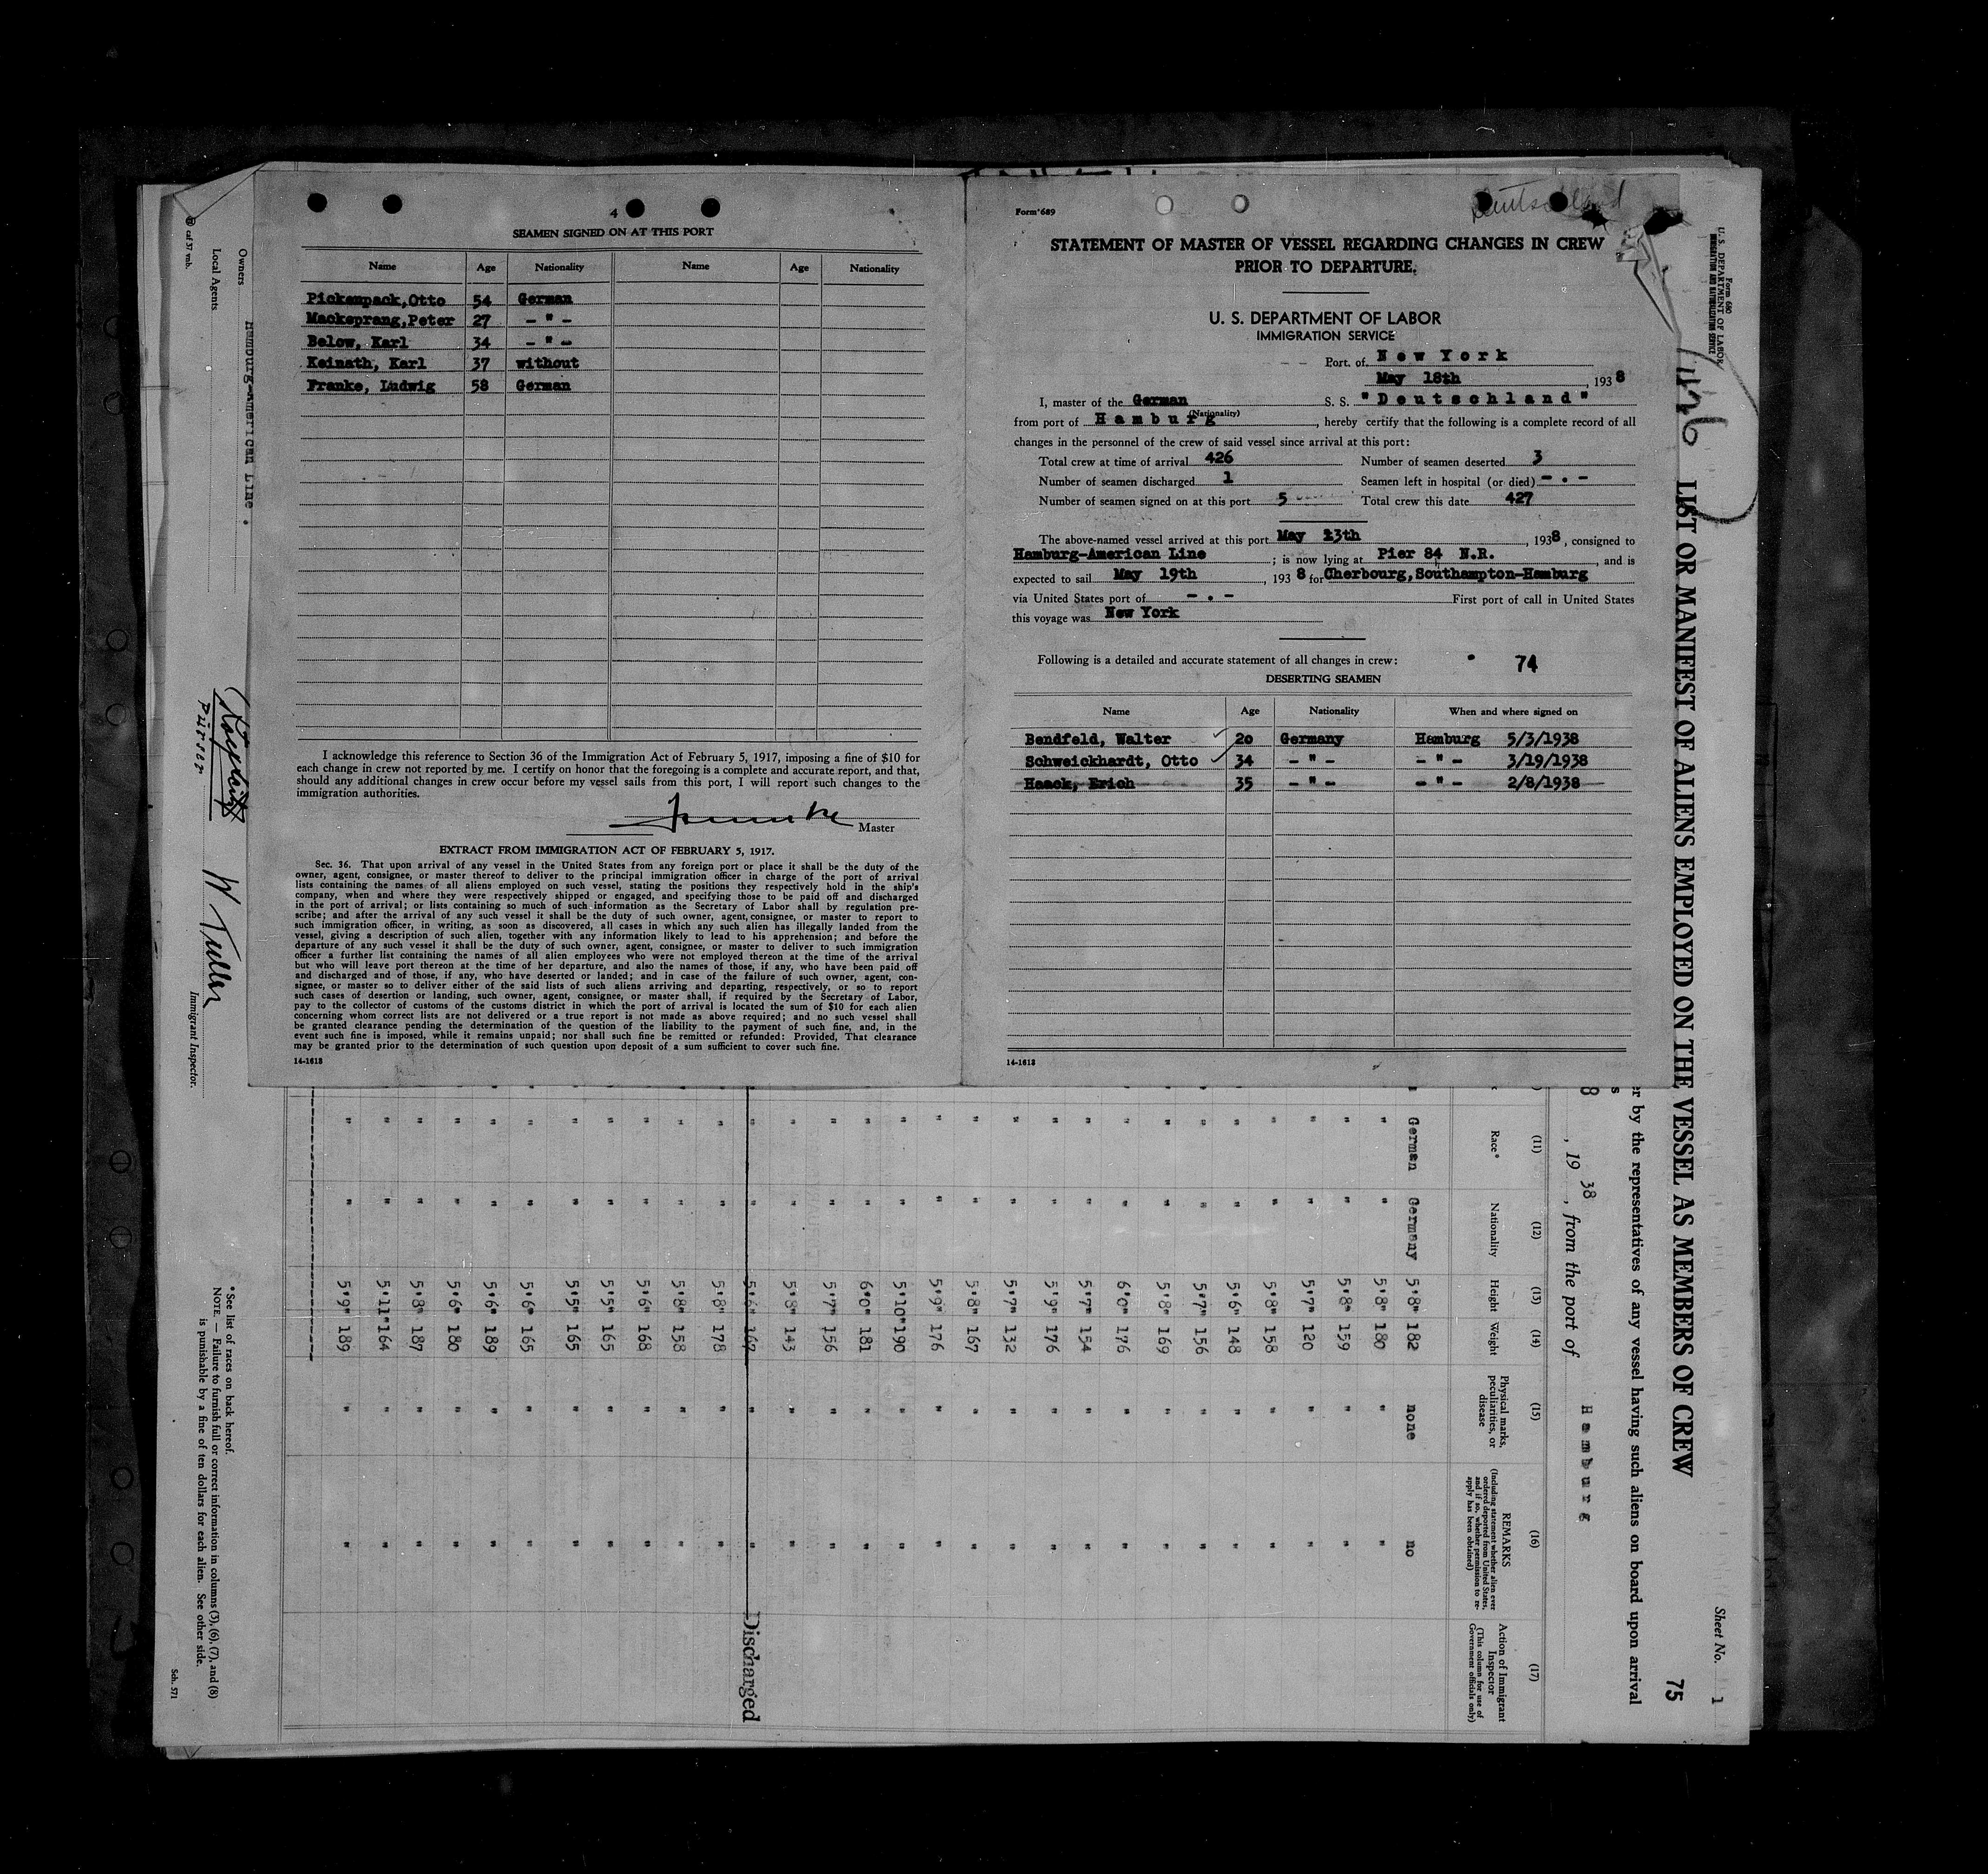 4
SEAMEN SIGNED ON AT THIS PORT
Name Age Nationality Name Age Nationality
Pickenpack,Otto 54 German
Mackeprang,Peter 27 - " -
Below, Karl 34 - " -
Keinath, Karl 37 without
Franke, Ludwig 58 German
I acknowledge this reference to Section 36 of the Immigration Act of February 5, 1917, imposing a fine of $10 for
each change in crew not reported by me. I certify on honor that the foregoing is a complete and accurate report, and that,
should any additional changes in crew occur before my vessel sails from this port, I will report such changes to the
immigration authorities.
Master
EXTRACT FROM IMMIGRATION ACT OF FEBRUARY 5, 1917.
Sec. 36. That upon arrival of any vessel in the United States from any foreign port or place it shall be the duty of the
owner, agent, consignee, or master thereof to deliver to the principal immigration officer in charge of the port of arrival
lists containing the names of all aliens employed on such vessel, stating the positions they respectively hold in the ship's
company, when and where they were respectively shipped or engaged, and specifying those to be paid off and discharged
in the port of arrival; or lists containing so much of such information as the Secretary of Labor shall by regulation pre-
scribe; and after the arrival of any such vessel it shall be the duty of such owner, agent, consignee, or master to report to
such immigration officer, in writing, as soon as discovered, all cases in which any such alien has illegally landed from the
vessel, giving a description of such alien, together with any information likely to lead to his apprehension; and before the
departure of any such vessel it shall be the duty of such owner, agent, consignee, or master to deliver to such immigration
officer a further list containing the names of all alien employees who were not employed thereon at the time of the arrival
but who will leave port thereon at the time of her departure, and also the names of those, if any, who have been paid off
and discharged; and of those, if any, who have deserted or landed; and in case of the failure of such owner, agent, con-
signee, or master so to deliver either of the said lists of such aliens arriving and departing, respectively, or so to report
such cases of desertion or landing, such owner, agent, consignee, or master shall, if required by the Secretary of Labor,
pay to the collector of customs of the customs district in which the port of arrival is located the sum of $10 for each alien
concerning whom correct lists are not delivered or a true report is not made as above required; and no such vessel shall
be granted clearance pending the determination of the question of the liability to the payment of such fine, and, in the
event such fine is imposed, while it remains unpaid; nor shall such fine be remitted or refunded: Provided, That clearance
may be granted prior to the determination of such question upon deposit of a sum sufficient to cover such fine.
14-1618
Deutschland
Form 689
STATEMENT OF MASTER OF VESSEL REGARDING CHANGES IN CREW
PRIOR TO DEPARTURE.
U. S. DEPARTMENT OF LABOR
IMMIGRATION SERVICE
Port of New York
May 18th, 1938
I, master of the German S. S. "Deutschland"
(Nationality)
from port of Hamburg, hereby certify that the following is a complete record of all
changes in the personnel of the crew of said vessel since arrival at this port:
Total crew at time of arrival 426 Number of seamen deserted 3
Number of seamen discharged 1 Seamen left in hospital (or died) - . -
Number of seamen signed on at this port 5 Total crew this date 427
The above-named vessel arrived at this port May 13th, 1938, consigned to
Hamburg-American Line; is now lying at Pier 84 N.R., and is
expected to sail May 19th, 1938 for Cherbourg,Southampton-Hamburg
via United States port of - . - First port of call in United States
this voyage was New York
Following is a detailed and accurate statement of all changes in crew: 74
DESERTING SEAMEN
Name Age Nationality When and where signed on
Bendfeld, Walter 20 Germany Hamburg 5/3/1938
Schweickhardt, Otto 34 - " - - " - 3/19/1938
Haack, Erich 35 - " - - " - 2/8/1938
14-1618
Form 680
U. S. DEPARTMENT OF LABOR
IMMIGRATION AND NATURALIZATION SERVICE
Sheet No. 1
426
LIST OR MANIFEST OF ALIENS EMPLOYED ON THE VESSEL AS MEMBERS OF CREW
75
er by the representatives of any vessel having such aliens on board upon arrival
8, 19 38, from the port of Hamburg
(11) (12) (13) (14) (15) (16) (17)
Race* Nationality Height Weight Physical marks, peculiarities, or disease REMARKS (Including statement whether alien ever ordered deported from United States, and if so, whether permission to re-apply has been obtained) Action of Immigrant Inspector (This column for use of Government officials only)
German Germany 5'8" 182 none no
" " 5'8" 180 " "
" " 5'8" 159 " "
" " 5'7" 120 " "
" " 5'8" 158 " "
" " 5'6" 148 " "
" " 5'7" 156 " "
" " 5'8" 169 " "
" " 6'0" 176 " "
" " 5'7" 154 " "
" " 5'9" 176 " "
" " 5'7" 132 " "
" " 5'8" 167 " "
" " 5'9" 176 " "
" " 5'10" 190 " "
" " 6'0" 181 " "
" " 5'7" 156 " "
" " 5'8" 143 " "
" " 5'6" 167 " " Discharged
" " 5'8" 178 " "
" " 5'8" 158 " "
" " 5'6" 168 " "
" " 5'5" 165 " "
" " 5'5" 165 " "
" " 5'6" 165 " "
" " 5'6" 189 " "
" " 5'6" 180 " "
" " 5'8" 187 " "
" " 5'11" 164 " "
" " 5'9" 189 " "
Owners Hamburg-American Line .
Local Agents
Purser
Immigrant Inspector.
*See list of races on back hereof.
NOTE.—Failure to furnish full or correct information in columns (3), (6), (7), and (8)
is punishable by a fine of ten dollars for each alien. See other side.
Sch. 571